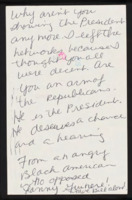 Why aren't you
showing the President
any more I left the
networks because I
thought you all
were decent are
you an arm of
the republicans.
He is the President.
He deserves a chance
and a hearing
From an angry
Black american